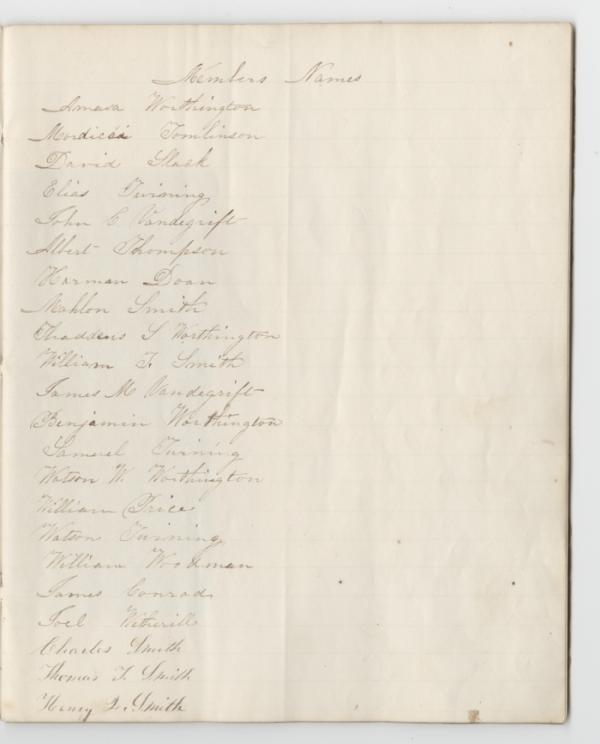 Members Names
Amasa Worthington
Mordicai Tomlinson
David Slack
Elias Twining
John C Vandegrift
Albert Thompson
Harman Doan
Mahlon Smith
Thaddeus S Worthington
William T. Smith
James M Vandegrift
Benjamin Worthington
Samuel Twining
Watson W. Worthington
William Price
Watson Twining
William Woodman
James Conrad
Joel Wetherill
Charles Smith
Thomas T. Smith
Henry Smith